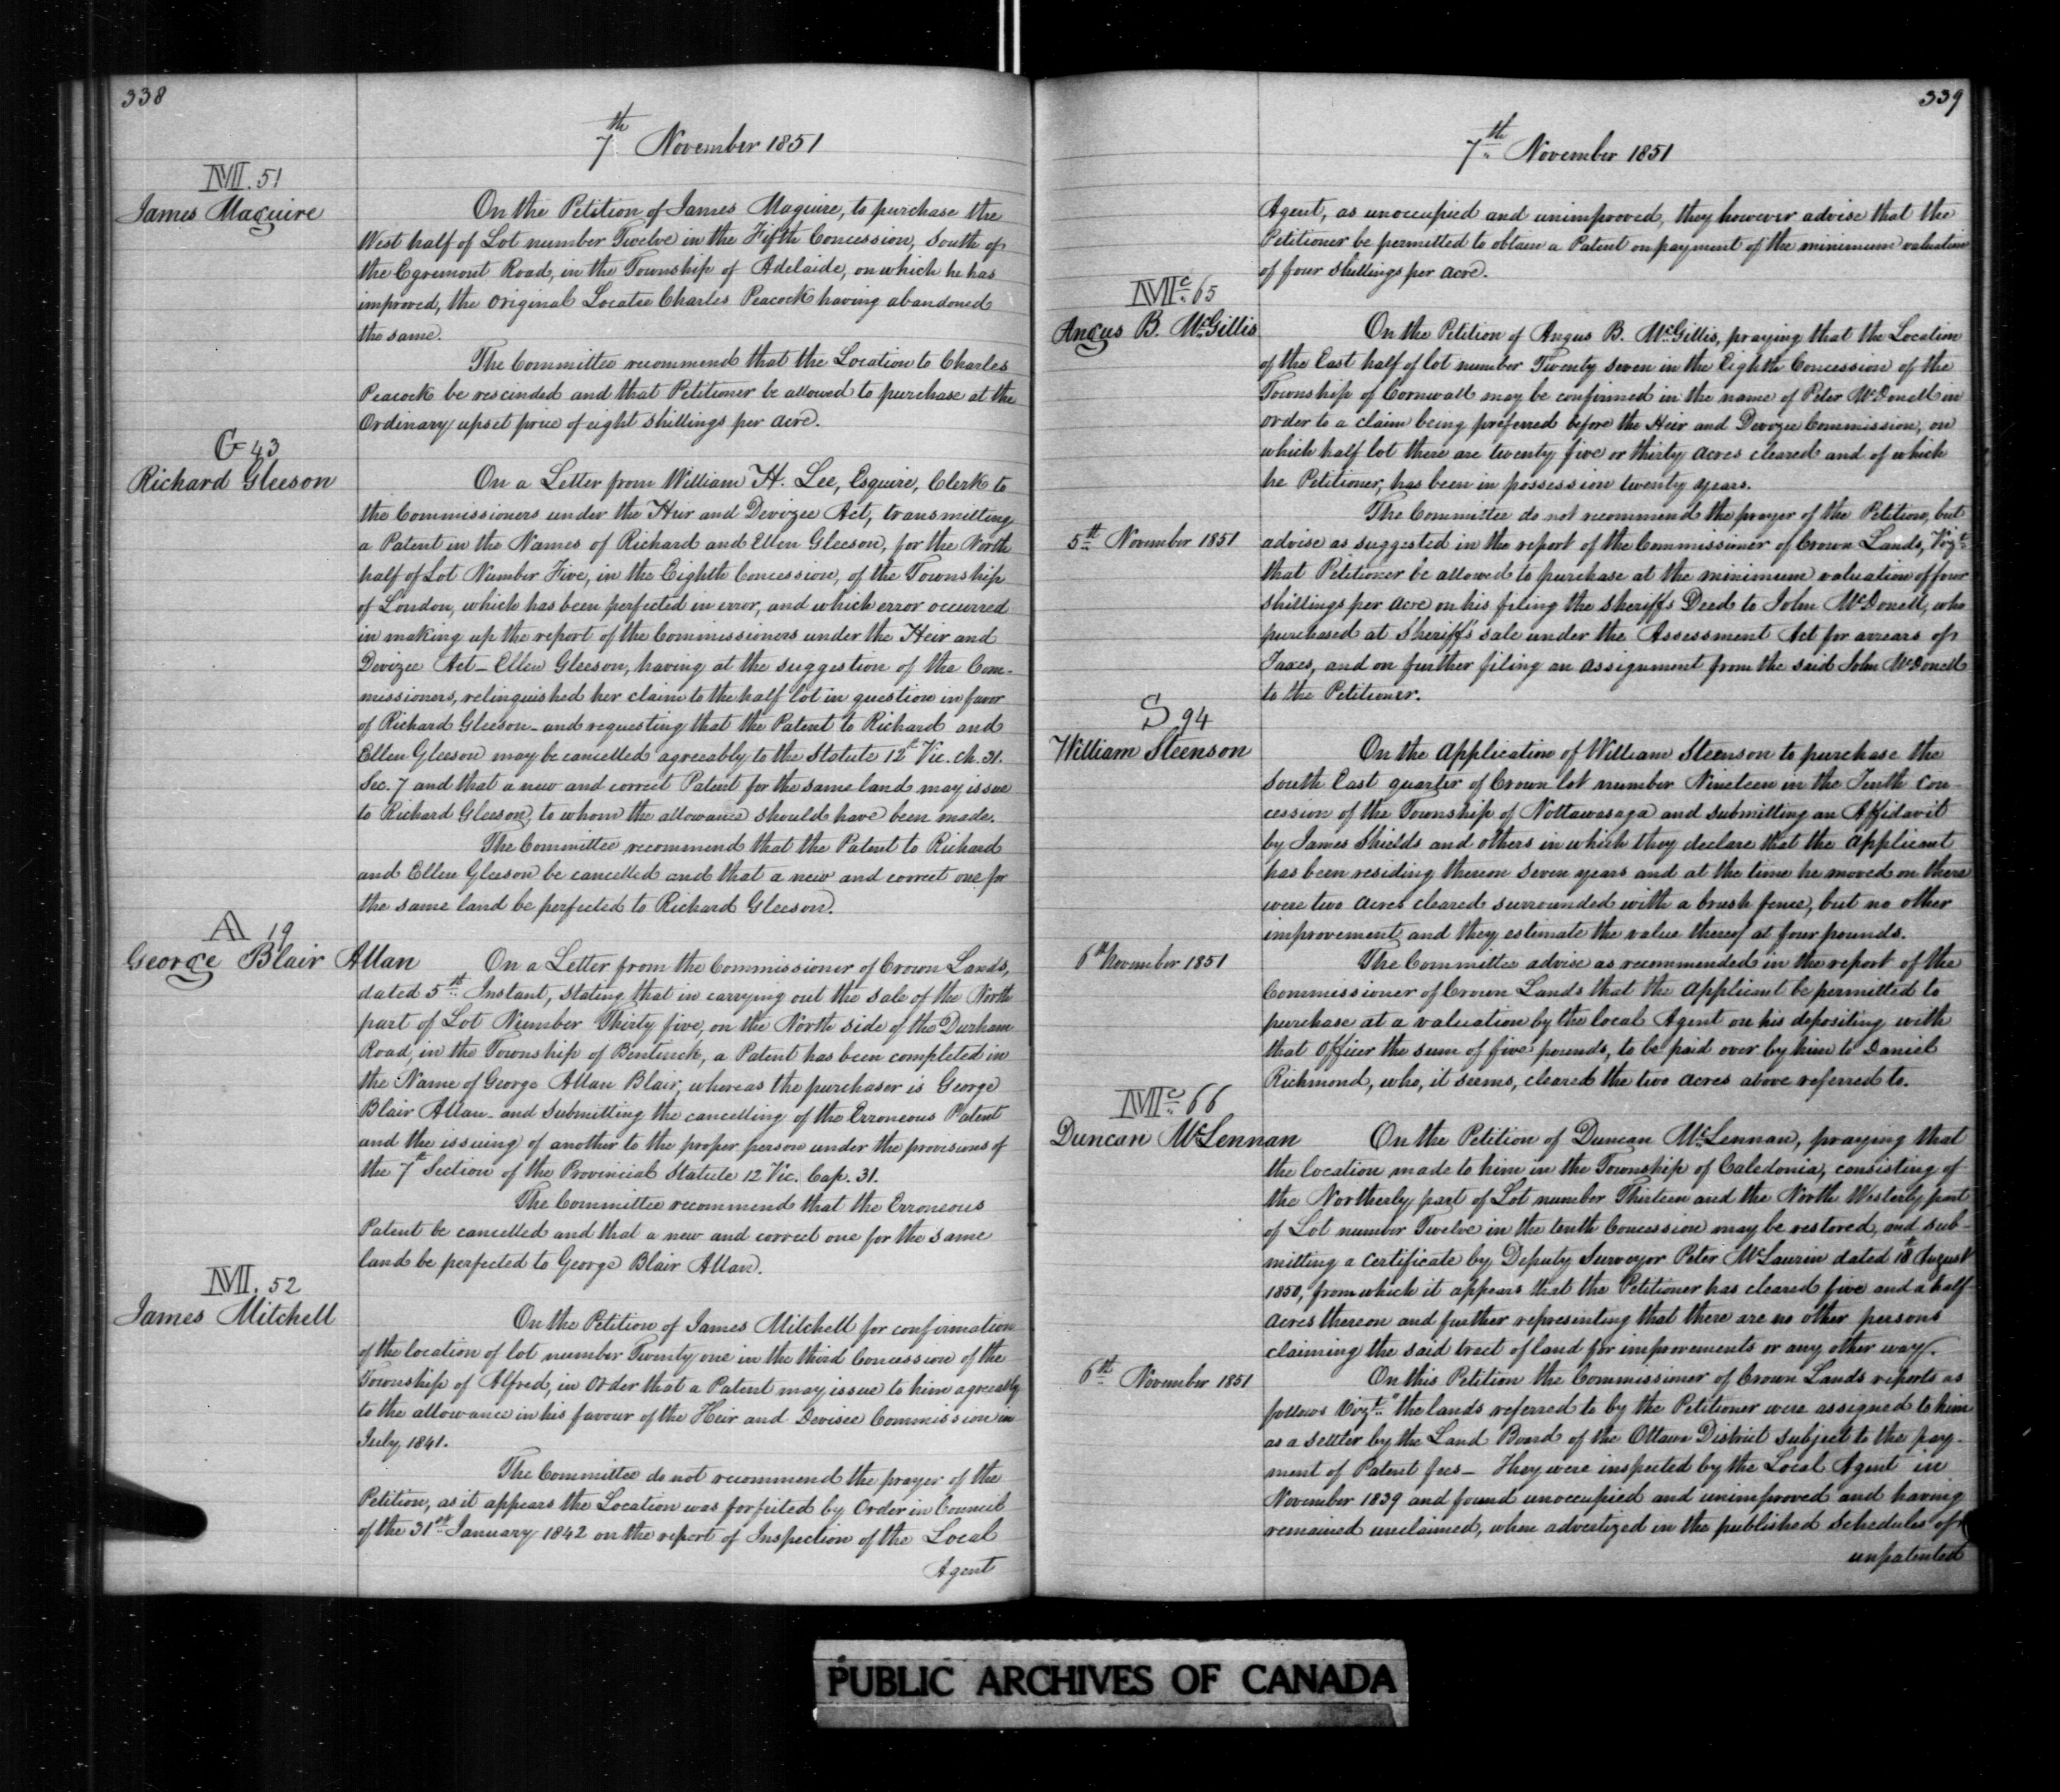 338
7th November 1851
M. 51
James Maguire
On the Petition of James Maguire, to purchase the
West half of Lot number Twelve in the Fifth Concession, South of
the Egremont Road, in the Township of Adelaide, on which he has
improved, the original Locatee Charles Peacock having abandoned
the same.
The Committee recommend that the Location to Charles
Peacock be rescinded and that Petitioner be allowed to purchase at the
Ordinary upset price of eight shillings per acre.
G 43
Richard Gleeson
On a Letter from William H. Lee, Esquire, Clerk to
the Commissioners under the Heir and Devizee Act, transmitting
a Patent in the Names of Richard and Ellen Gleeson, for the North
half of Lot Number Five, in the Eighth Concession, of the Township
of London, which has been perfected in error, and which error occurred
in making up the report of the Commissioners under the Heir and
Devizee Act_ Ellen Gleeson, having at the suggestion of the Com-
missioners, relinquished her claim to the half lot in question in favor
of Richard Gleeson_ and requesting that the Patent to Richard and
Ellen Gleeson may be cancelled agreeably to the Statute 12th Vic. ch. 31.
Sec. 7 and that a new and correct Patent for the same land may issue
to Richard Gleeson, to whom the allowance should have been made.
The Committee recommend that the Patent to Richard
and Ellen Gleeson be cancelled and that a new and correct one for
the same land be perfected to Richard Gleeson.
A 19
George Blair Allan
On a Letter from the Commissioner of Crown Lands,
dated 5th Instant, stating that in carrying out the sale of the North
part of Lot Number Thirty five, on the North side of the Durham
Road, in the Township of Bentinck, a Patent has been completed in
the Name of George Allan Blair, whereas the purchaser is George
Blair Allan_ and submitting the cancelling of the Erroneous Patent
and the issuing of another to the proper person under the provisions of
the 7th Section of the Provincial Statute 12 Vic. Cap. 31.
The Committee recommend that the Erroneous
Patent be cancelled and that a new and correct one for the same
land be perfected to George Blair Allan.
M. 52
James Mitchell
On the Petition of James Mitchell for confirmation
of the location of lot number Twenty one in the third Concession of the
Township of Alfred, in Order that a Patent may issue to him agreeably
to the allowance in his favour of the Heir and Devisee Commission in
July 1841.
The Committee do not recommend the prayer of the
Petition, as it appears the Location was forfeited by Order in Council
of the 31st January 1842 on the report of Inspection of the Local
Agent
339
7th November 1851
Agent, as unoccupied and unimproved, they however advise that the
Petitioner be permitted to obtain a Patent on payment of the minimum valuation
of four shillings per acre.
Mc 65
Angus B. McGillis
On the Petition of Angus B. McGillis, praying that the Location
of the East half of lot number Twenty seven in the Eighth Concession of the
Township of Cornwall may be confirmed in the name of Peter McDonell in
order to a claim being preferred before the Heir and Devizee Commission, on
which half lot there are twenty five or thirty acres cleared and of which
he Petitioner, has been in possession twenty years.
The Committee do not recommend the prayer of the Petition, but
5th November 1851
advise as suggested in the report of the Commissioner of Crown Lands, Vizt
that Petitioner be allowed to purchase at the minimum valuation of four
shillings per acre on his filing the Sheriff's Deed to John McDonell, who
purchased at Sheriff's sale under the Assessment Act for arrears of
Taxes, and on further filing an assignment from the said John McDonell
to the Petitioner.
S 94
William Steenson
On the application of William Steenson to purchase the
South East quarter of Crown lot number Nineteen in the Tenth Con-
cession of the Township of Nottawasaga and submitting an Affidavit
by James Shields and others in which they declare that the applicant
has been residing thereon seven years and at the time he moved on there
were two acres cleared surrounded with a brush fence, but no other
improvement, and they estimate the value thereof at four pounds.
6th November 1851
The Committee advise as recommended in the report of the
Commissioner of Crown Lands that the applicant be permitted to
purchase at a valuation by the local Agent on his depositing with
that Officer the sum of five pounds, to be paid over by him to Daniel
Richmond, who, it seems, cleared the two acres above referred to.
Mc 66
Duncan McLennan
On the Petition of Duncan McLennan, praying that
the location made to him in the Township of Caledonia, consisting of
the Northerly part of Lot number Thirteen and the North Westerly part
of Lot number Twelve in the tenth Concession may be restored, and sub-
mitting a certificate by Deputy Surveyor Peter McLaurin dated 18th August
1850, from which it appears that the Petitioner has cleared five and a half
acres thereon and further representing that there are no other persons
claiming the said tract of land for improvements or any other way.
6th November 1851
On this Petition the Commissioner of Crown Lands reports as
follows Vizt "the lands referred to by the Petitioner were assigned to him
as a settler by the Land Board of the Ottawa District subject to the pay-
ment of Patent fees_ They were inspected by the Local Agent in
November 1839 and found unoccupied and unimproved and having
remained unclaimed, when advertized in the published Schedules of
unpatented
PUBLIC ARCHIVES OF CANADA